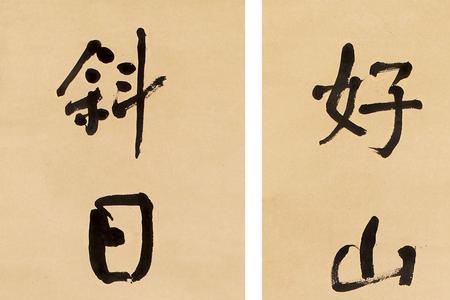 好山
斜日